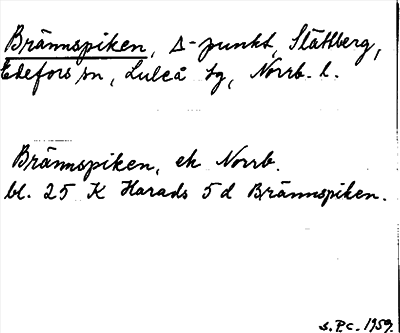 Brännspiken, Δ-punkt, Ståttberg,
Edefors sn, Luleå tg, Norrb. l.
Brännspiken, ek Norrb.
bl. 25 K Harads 5d Brännspiken.
s. P.c. 1959.